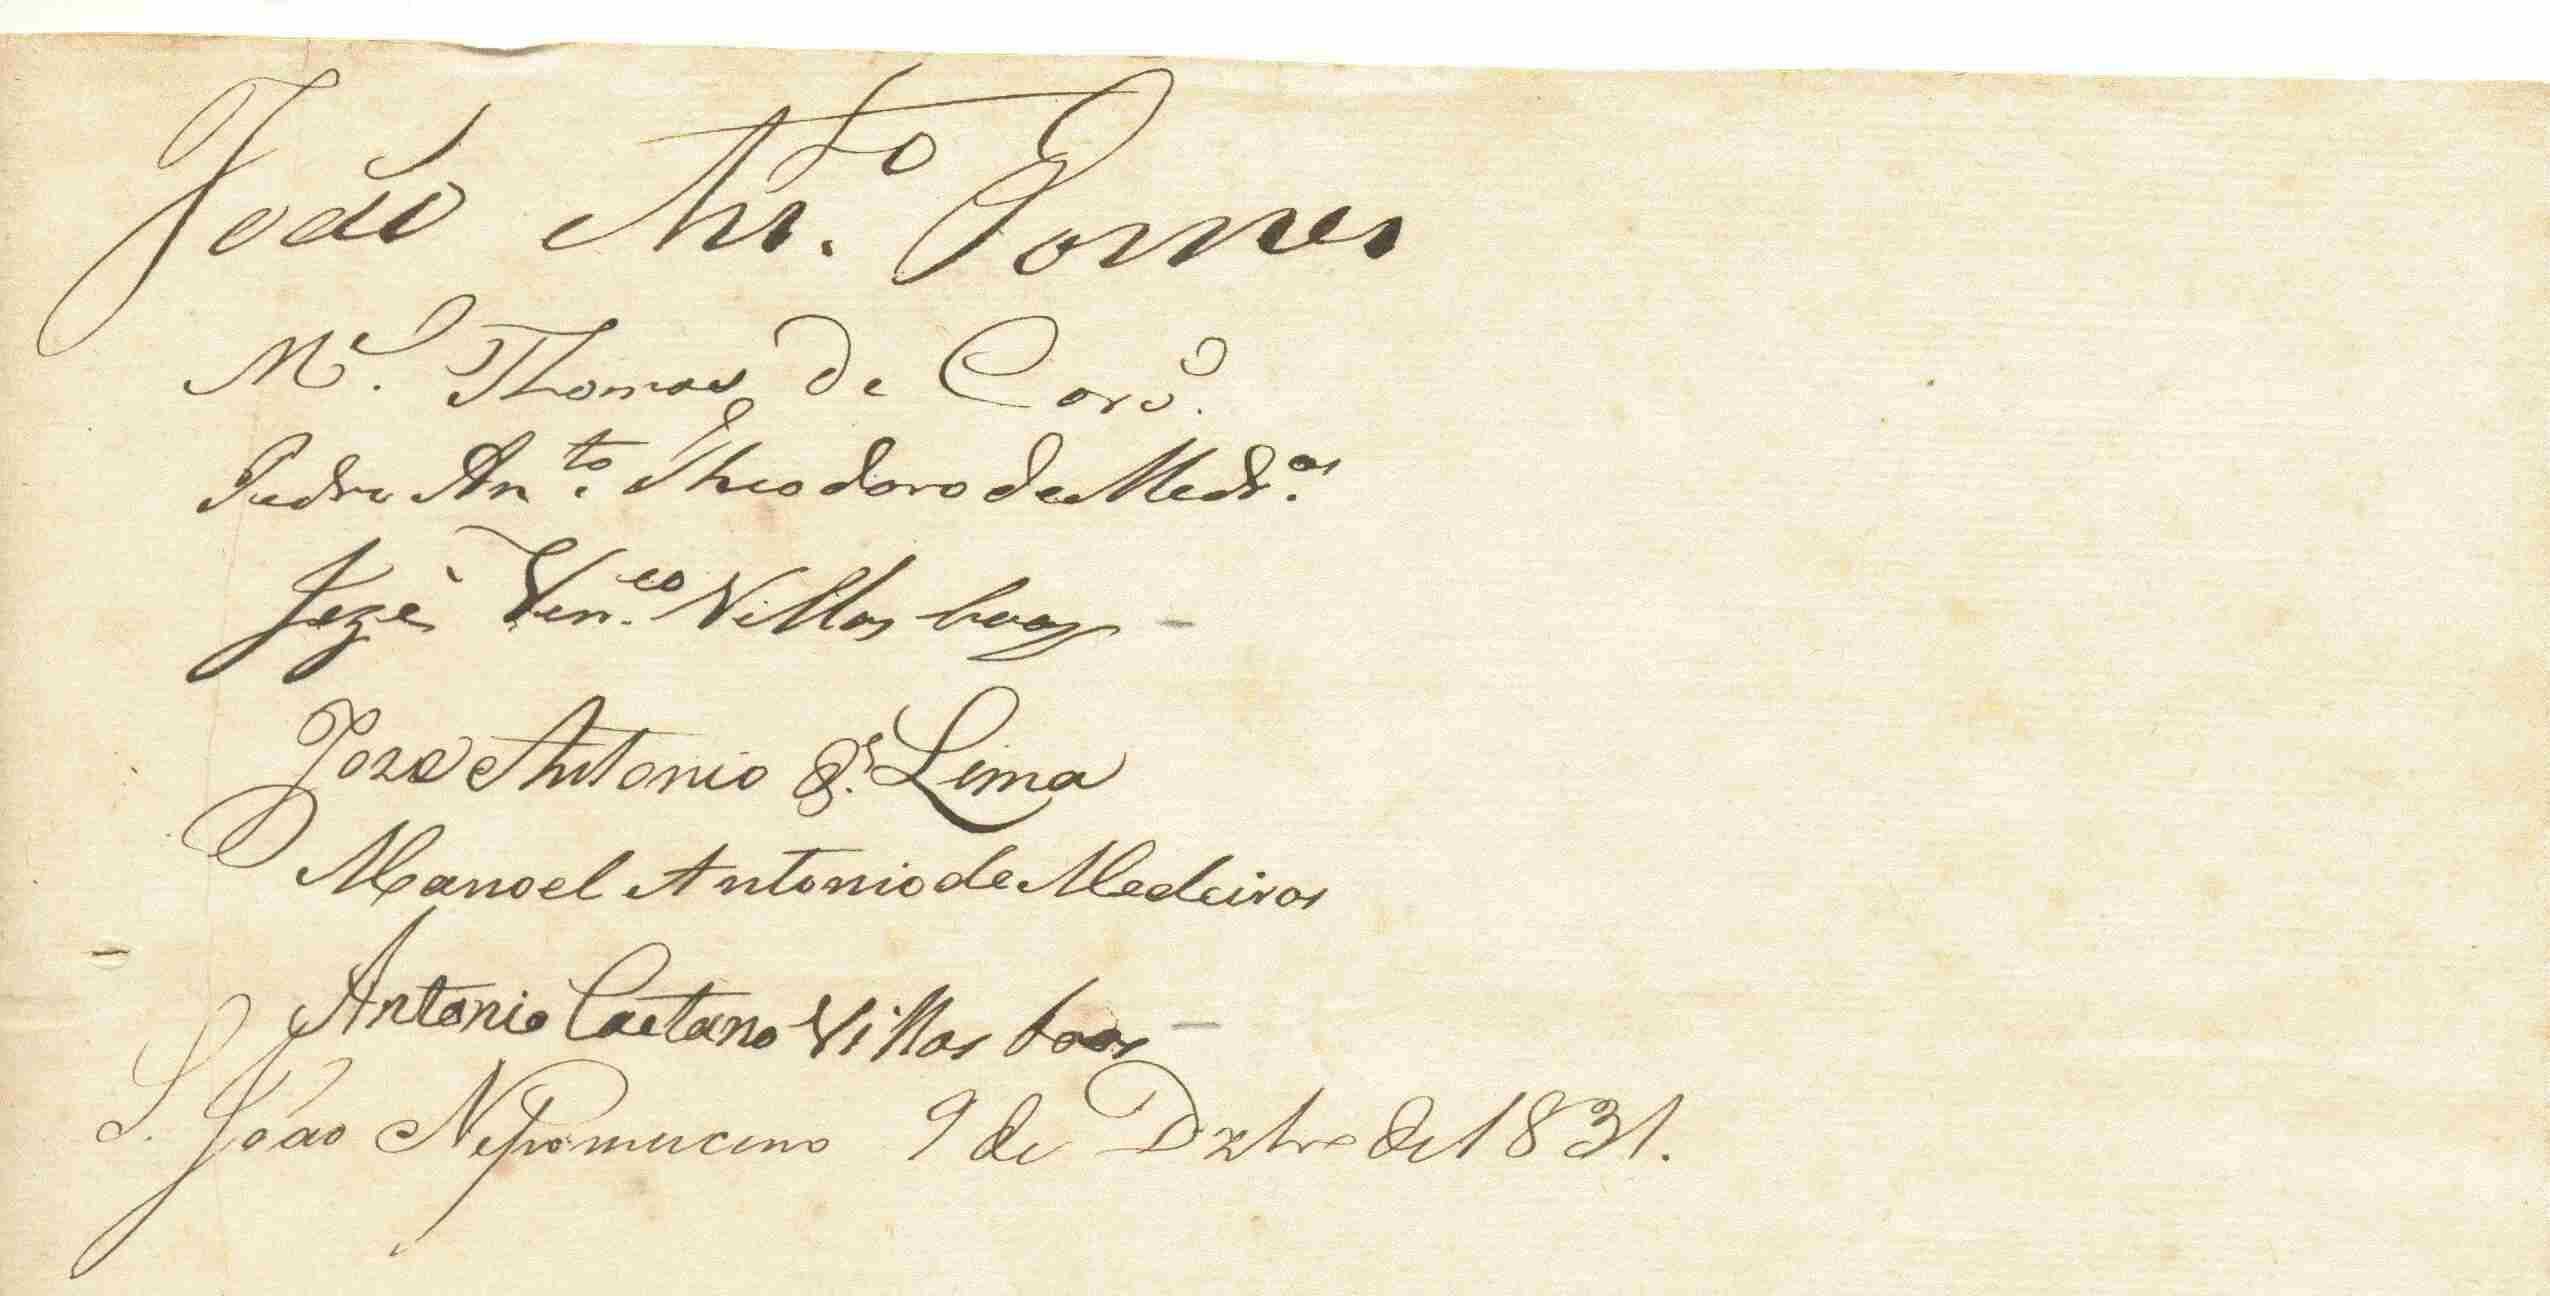 João Anto. Gomes
Mel. Thomas de Carvo.
Pedro Anto. Theodoro de Medros.
Jozé Venco. Villas boas
Joze Antonio de Lima
Manoel Antonio de Medeiros
Antonio Caetano Villas boas
S. João Nepomuceno 9 de Dzbro de 1831.